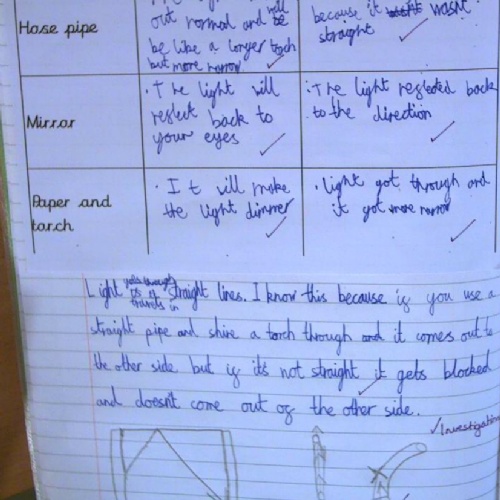 out normal and will
be like a longer torch
but more narrow
Hose pipe
because it wasn't
straight
Mirror
· The light will
reflect back to
your eyes
· The light reflected back
to the direction
Paper and
torch
· It will make
the light dimmer
· light got through and
it got more narrow
Light travels in straight lines. I know this because if you use a
straight pipe and shine a torch through and it comes out to
the other side but if it's not straight it gets blocked
and doesn't come out of the other side.
Investigation